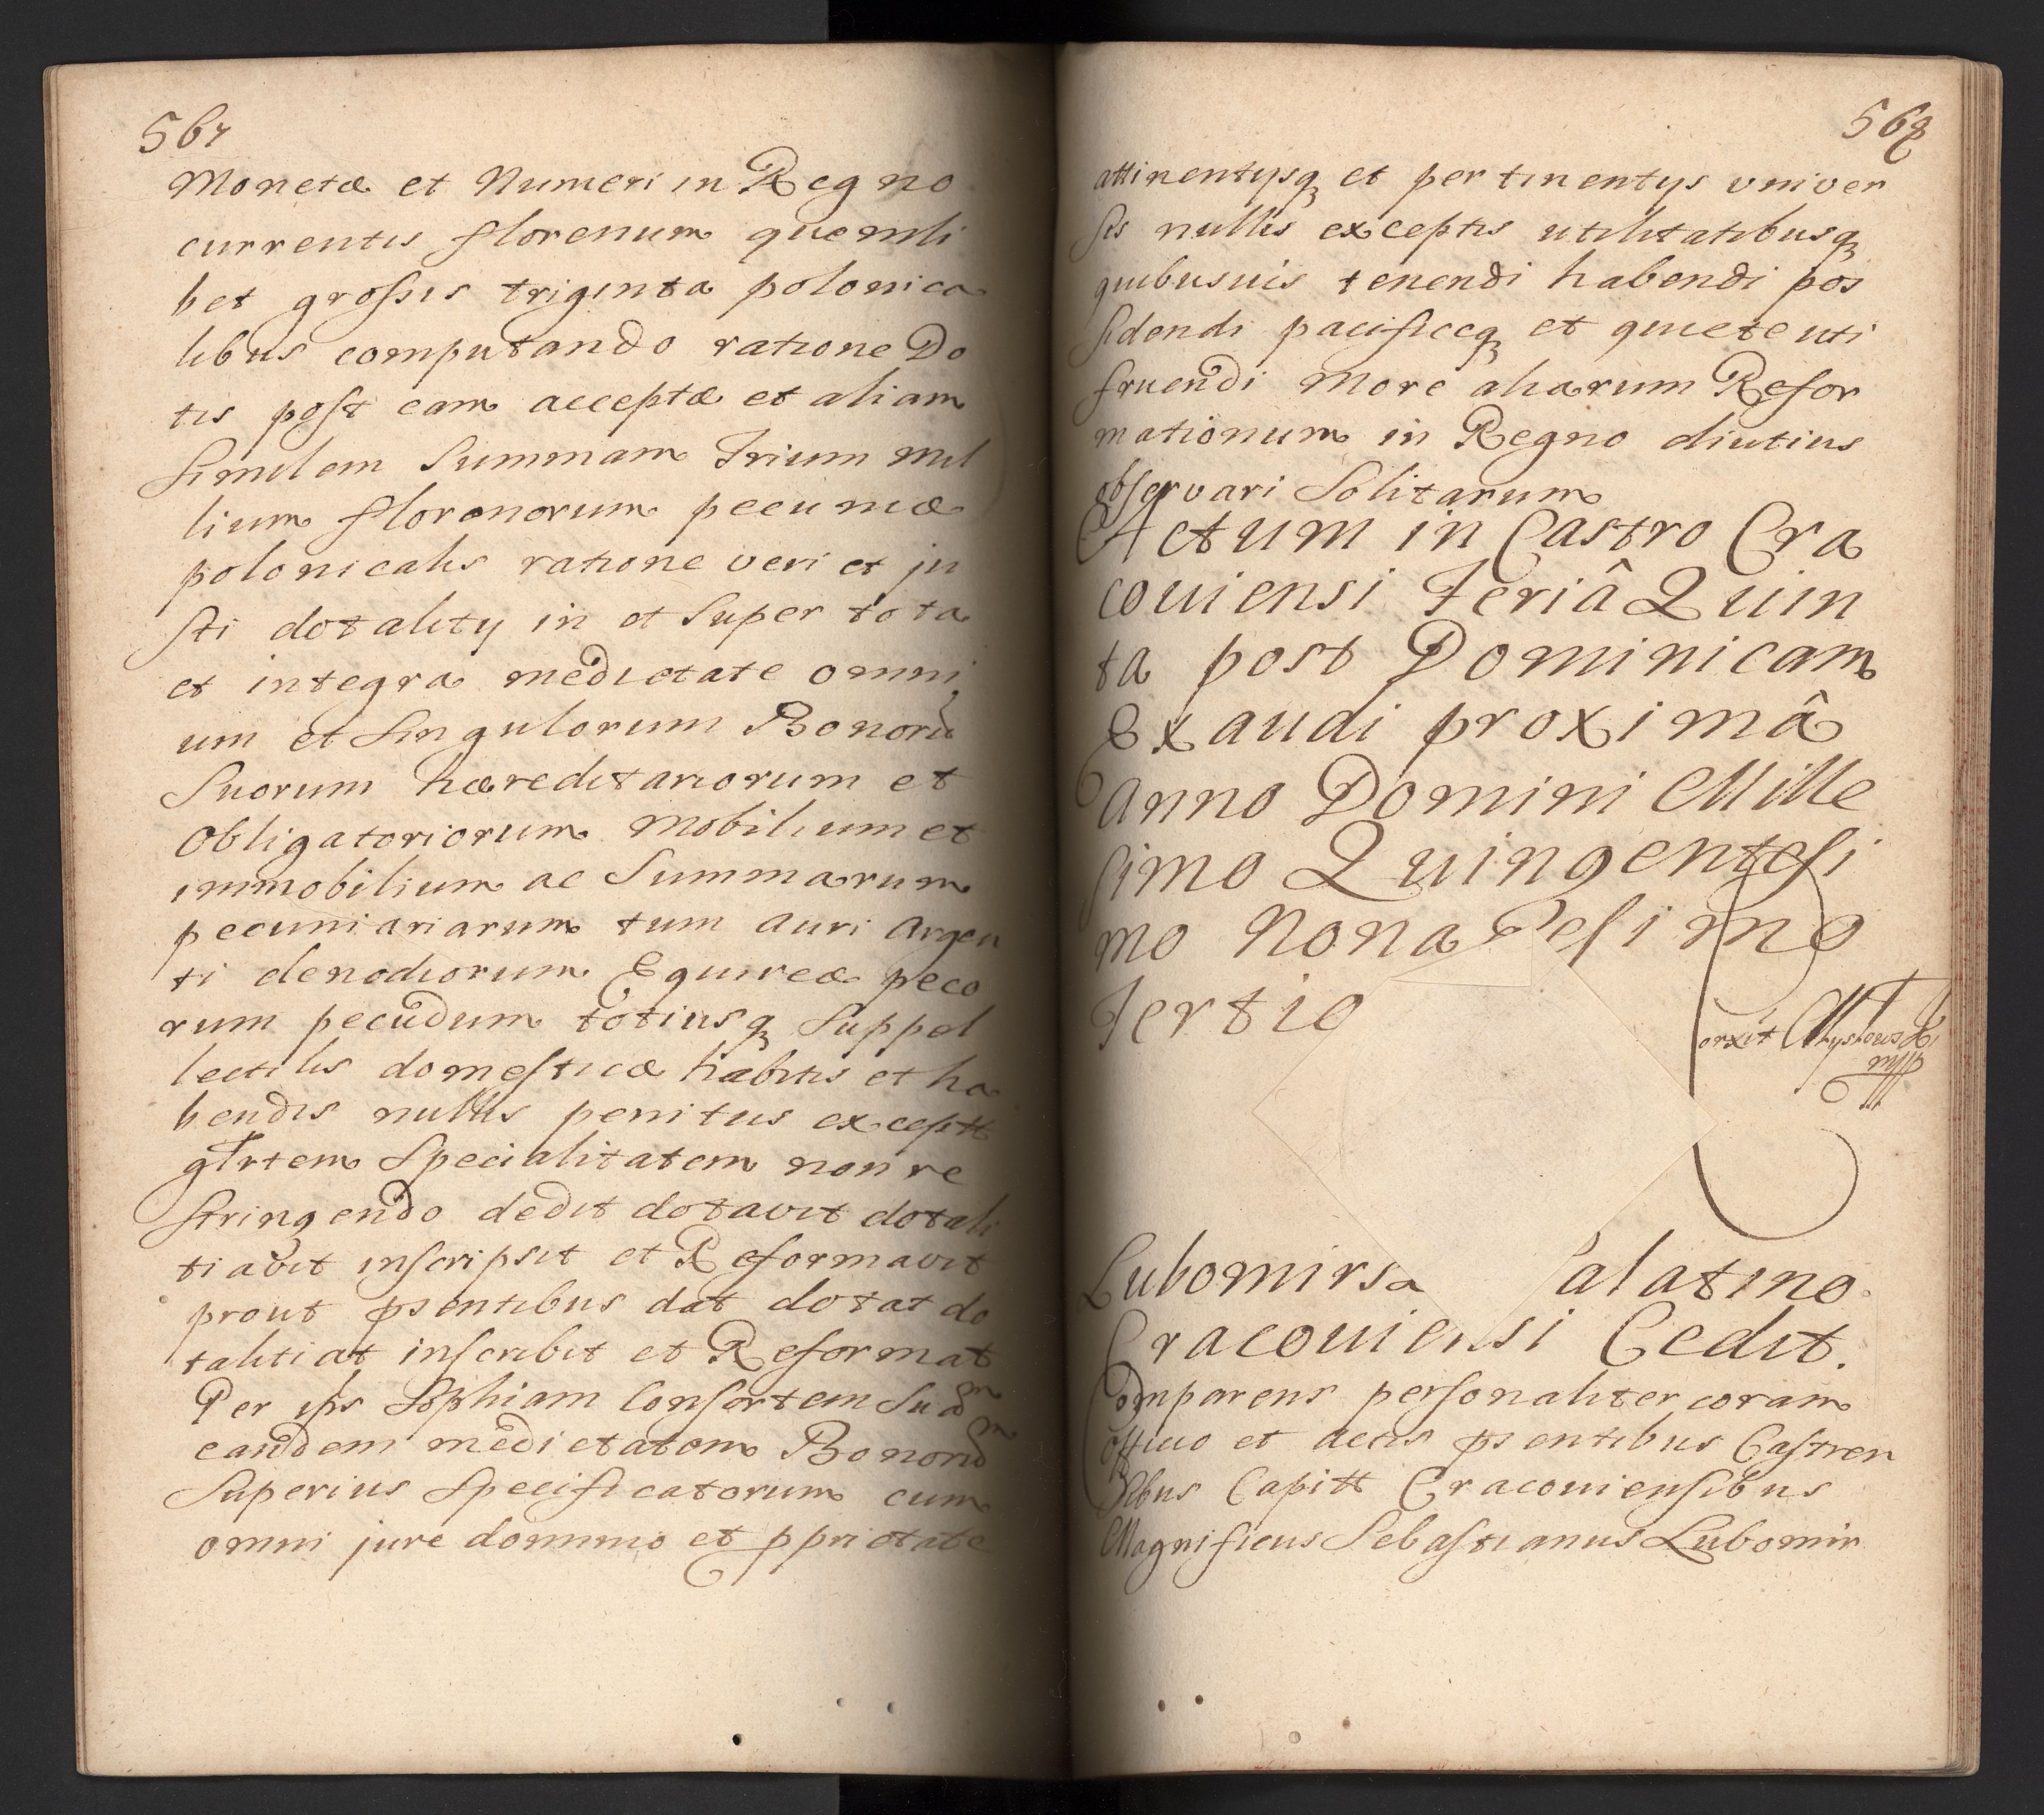 567
Monetæ et Numeri in Regno
currentis florenum quemli
bet grossis triginta polonica
libus computando ratione Do
tis post eam acceptæ et aliam
Similem Summam Trium mil
lium florenorum pecuniæ
polonicalis ratione veri et ju
sti dotality in et super tota
et integra medietate omni
um et singulorum Bonorũ
Suorum hæreditariorum et
obligatoriorum Mobilium et
immobilium ac Summarum
pecuniariarum tum auri Argen
ti clenodiorum Equireæ peco
rum pecudum totiusq Suppel
lectilis domesticæ habitis et ha
bendis nullis penitus exceptt
Specialitatem non re
stringendo dedit dotavit dotali
tiavit inscripsit et Reformavit
prout psentibus dat dotat do
talitiat inscribit et Reformat
Per Sophiam Consortem Suam
eandem medietatem Bonorũ
Superius Specificatorum cum
omni jure dominio et pprietate
568
attinentysq et pertinentys univer
sis nullis exceptis utilitatibusq
quibusuis tenendi habendi pos
sidendi pacificeq et quiete uti
fruendi More aliarum Refor
mationum in Regno diutius
observari Solitarum
Actum in Castro Cra
couiensi Feriâ Quin
ta post Dominicam
Exaudi proximâ
Anno Domini Mille
simo Quingentesi
mo Nonagesimo
Tertio
Lubomirs alatino
Cracouiensi Cedit.
Comparens personaliter coram
officio et actis psentibus Castren
sibus Capitt Cracouiensibus
Magnificus Sebastianus Lubomir